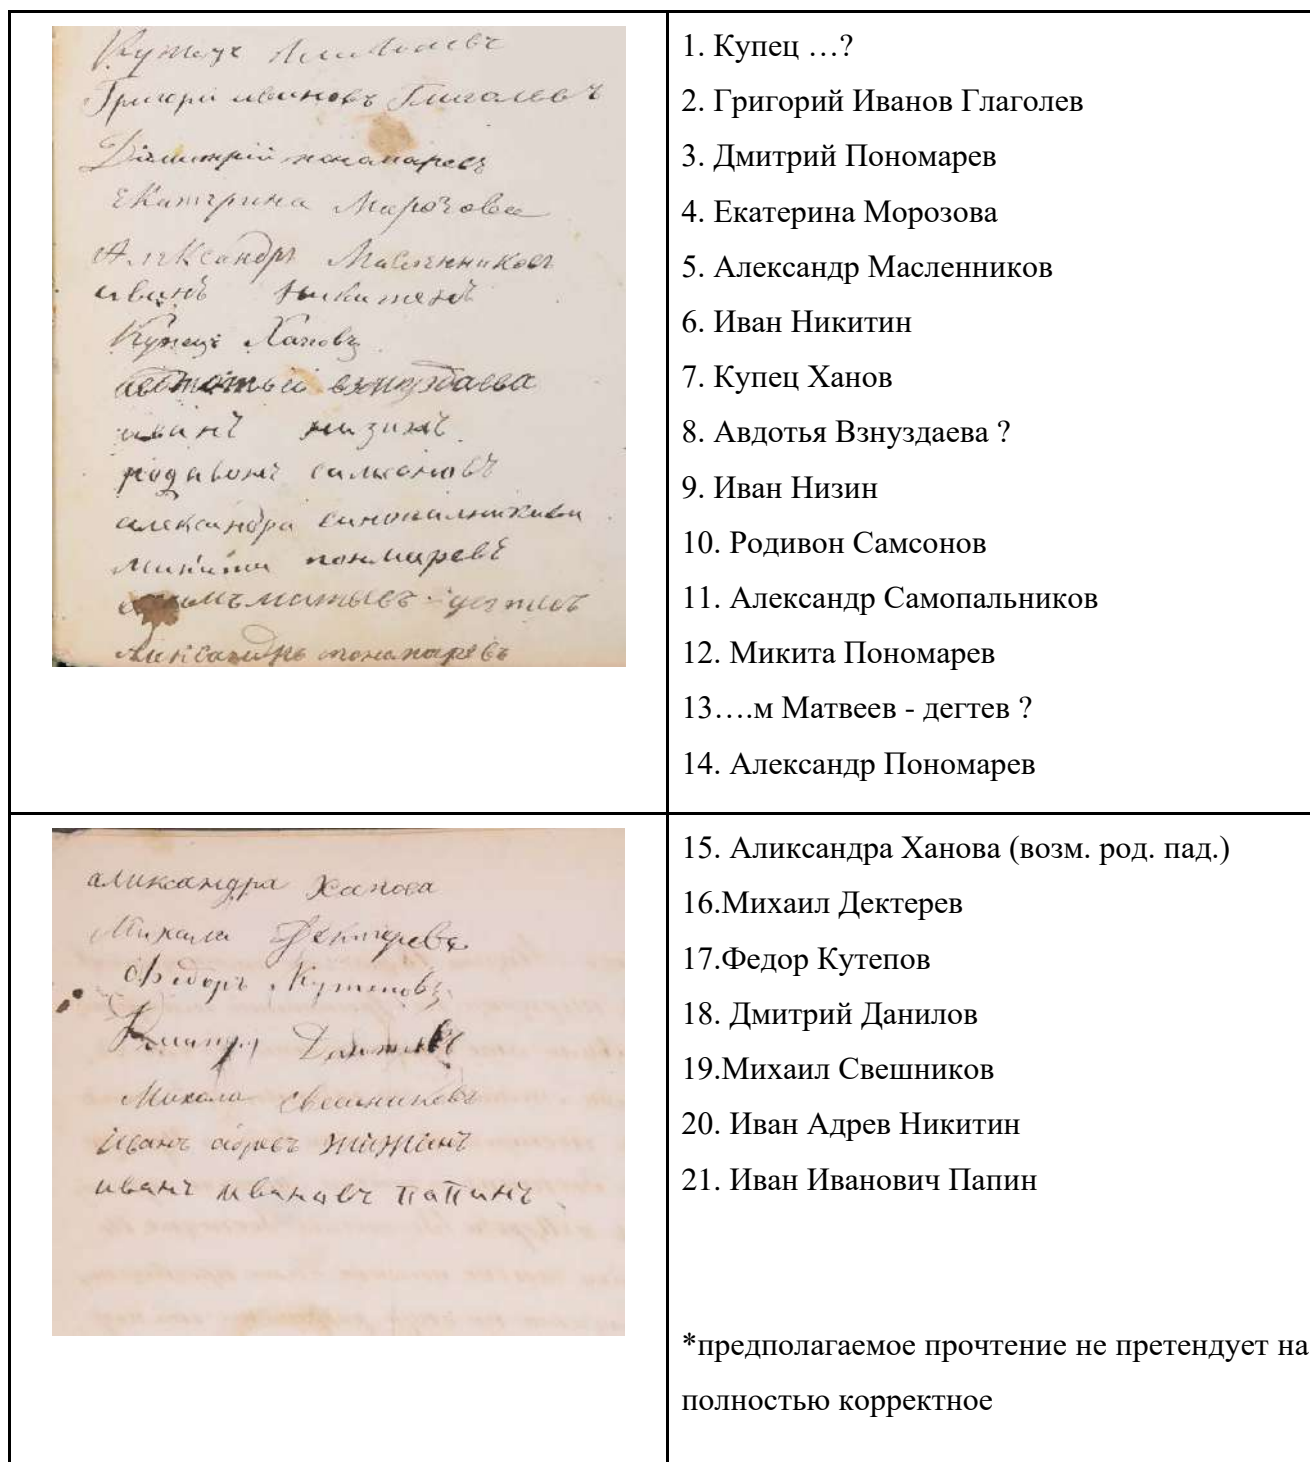 Купецъ
Григорій ивановъ Глаголевъ
Димитрій пономаревъ
Екатерина Марозова
Александръ Масленниковъ
иванъ никитенъ
Купецъ Хановъ
взнуздаева
иванъ низинъ
родивонъ самсоновъ
александра
Микита понмаревъ
матвевъ
Александръ пономаревъ
1. Купец …?
2. Григорий Иванов Глаголев
3. Дмитрий Пономарев
4. Екатерина Морозова
5. Александр Масленников
6. Иван Никитин
7. Купец Ханов
8. Авдотья Взнуздаева ?
9. Иван Низин
10. Родивон Самсонов
11. Александр Самопальников
12. Микита Пономарев
13….м Матвеев - дегтев ?
14. Александр Пономарев
аликсандра Ханова
Михаила Дектерева
Федоръ Кутеповъ
Михаила Свешниковъ
Иванъ адревъ
иванъ ивановъ папинъ
15. Аликсандра Ханова (возм. род. пад.)
16.Михаил Дектерев
17.Федор Кутепов
18. Дмитрий Данилов
19.Михаил Свешников
20. Иван Адрев Никитин
21. Иван Иванович Папин
*предполагаемое прочтение не претендует на
полностью корректное